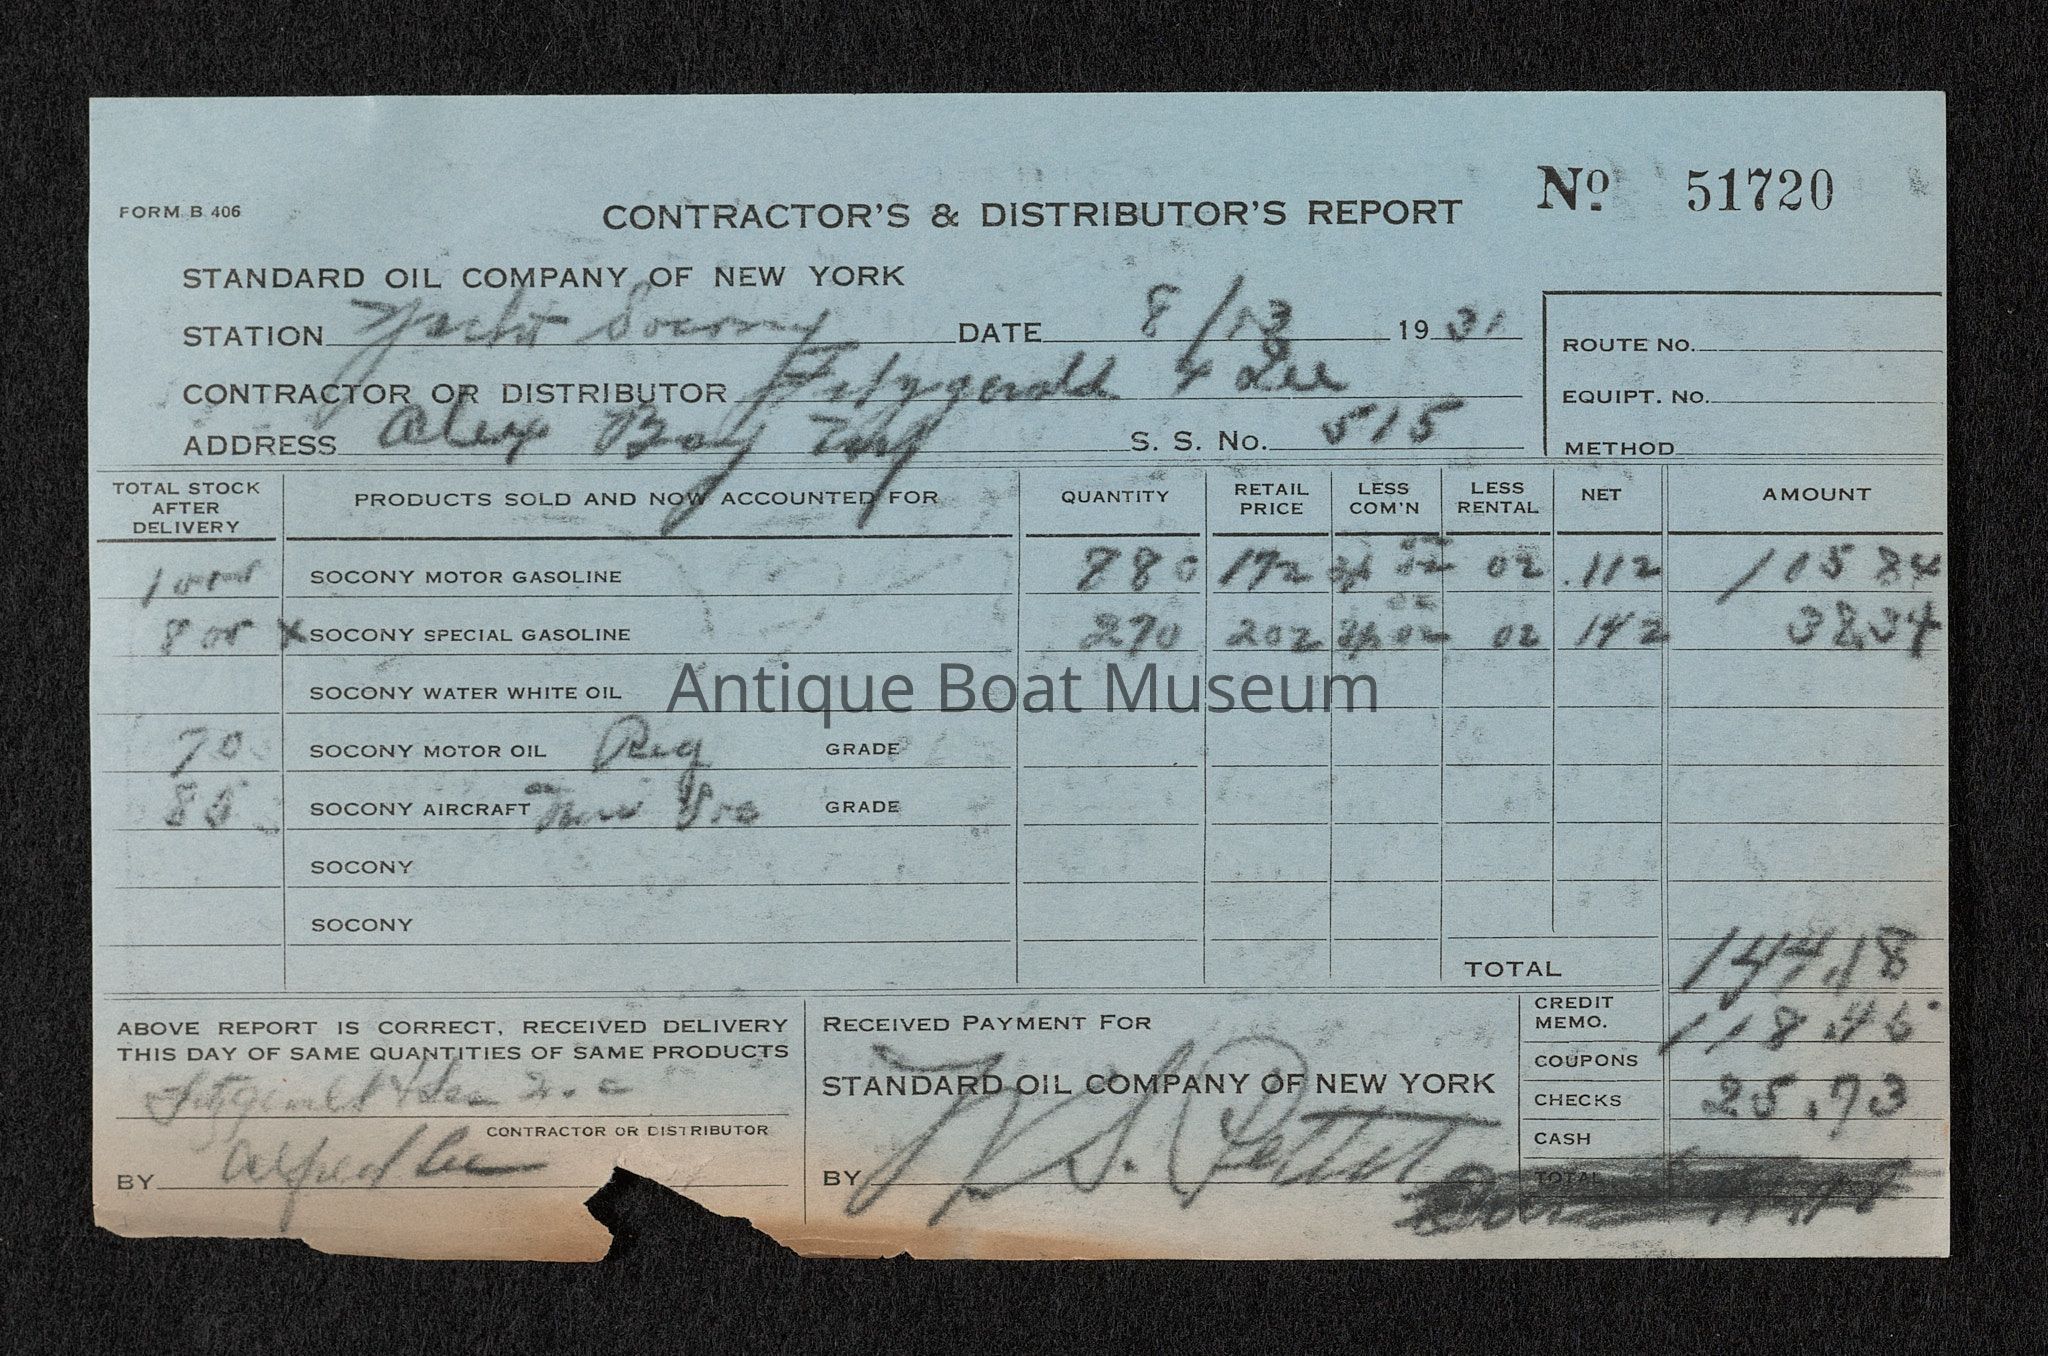 FORM B 406
CONTRACTOR'S & DISTRIBUTOR'S REPORT
No. 51720
STANDARD OIL COMPANY OF NEW YORK
STATION Yacht Socony DATE 8/13 1931
ROUTE No.
CONTRACTOR OR DISTRIBUTOR Fitzgerald & Lee
EQUIPT. No.
ADDRESS Alex Bay S. S. No. 515
METHOD
TOTAL STOCK AFTER DELIVERY PRODUCTS SOLD AND NOW ACCOUNTED FOR QUANTITY RETAIL PRICE LESS COM'N LESS RENTAL NET AMOUNT
SOCONY MOTOR GASOLINE 172 02 02 .112 105 84
800 x SOCONY SPECIAL GASOLINE 270 202 02 02 142 38.34
SOCONY WATER WHITE OIL
Antique Boat Museum
70 SOCONY MOTOR OIL Reg GRADE
85 SOCONY AIRCRAFT GRADE
SOCONY
SOCONY
TOTAL 144.18
ABOVE REPORT IS CORRECT, RECEIVED DELIVERY
THIS DAY OF SAME QUANTITIES OF SAME PRODUCTS
Fitzgerald & Lee
CONTRACTOR OR DISTRIBUTOR
BY Alfred Lee
RECEIVED PAYMENT FOR
STANDARD OIL COMPANY OF NEW YORK
BY
CREDIT MEMO. 118.45
COUPONS
CHECKS 25.73
CASH
TOTAL